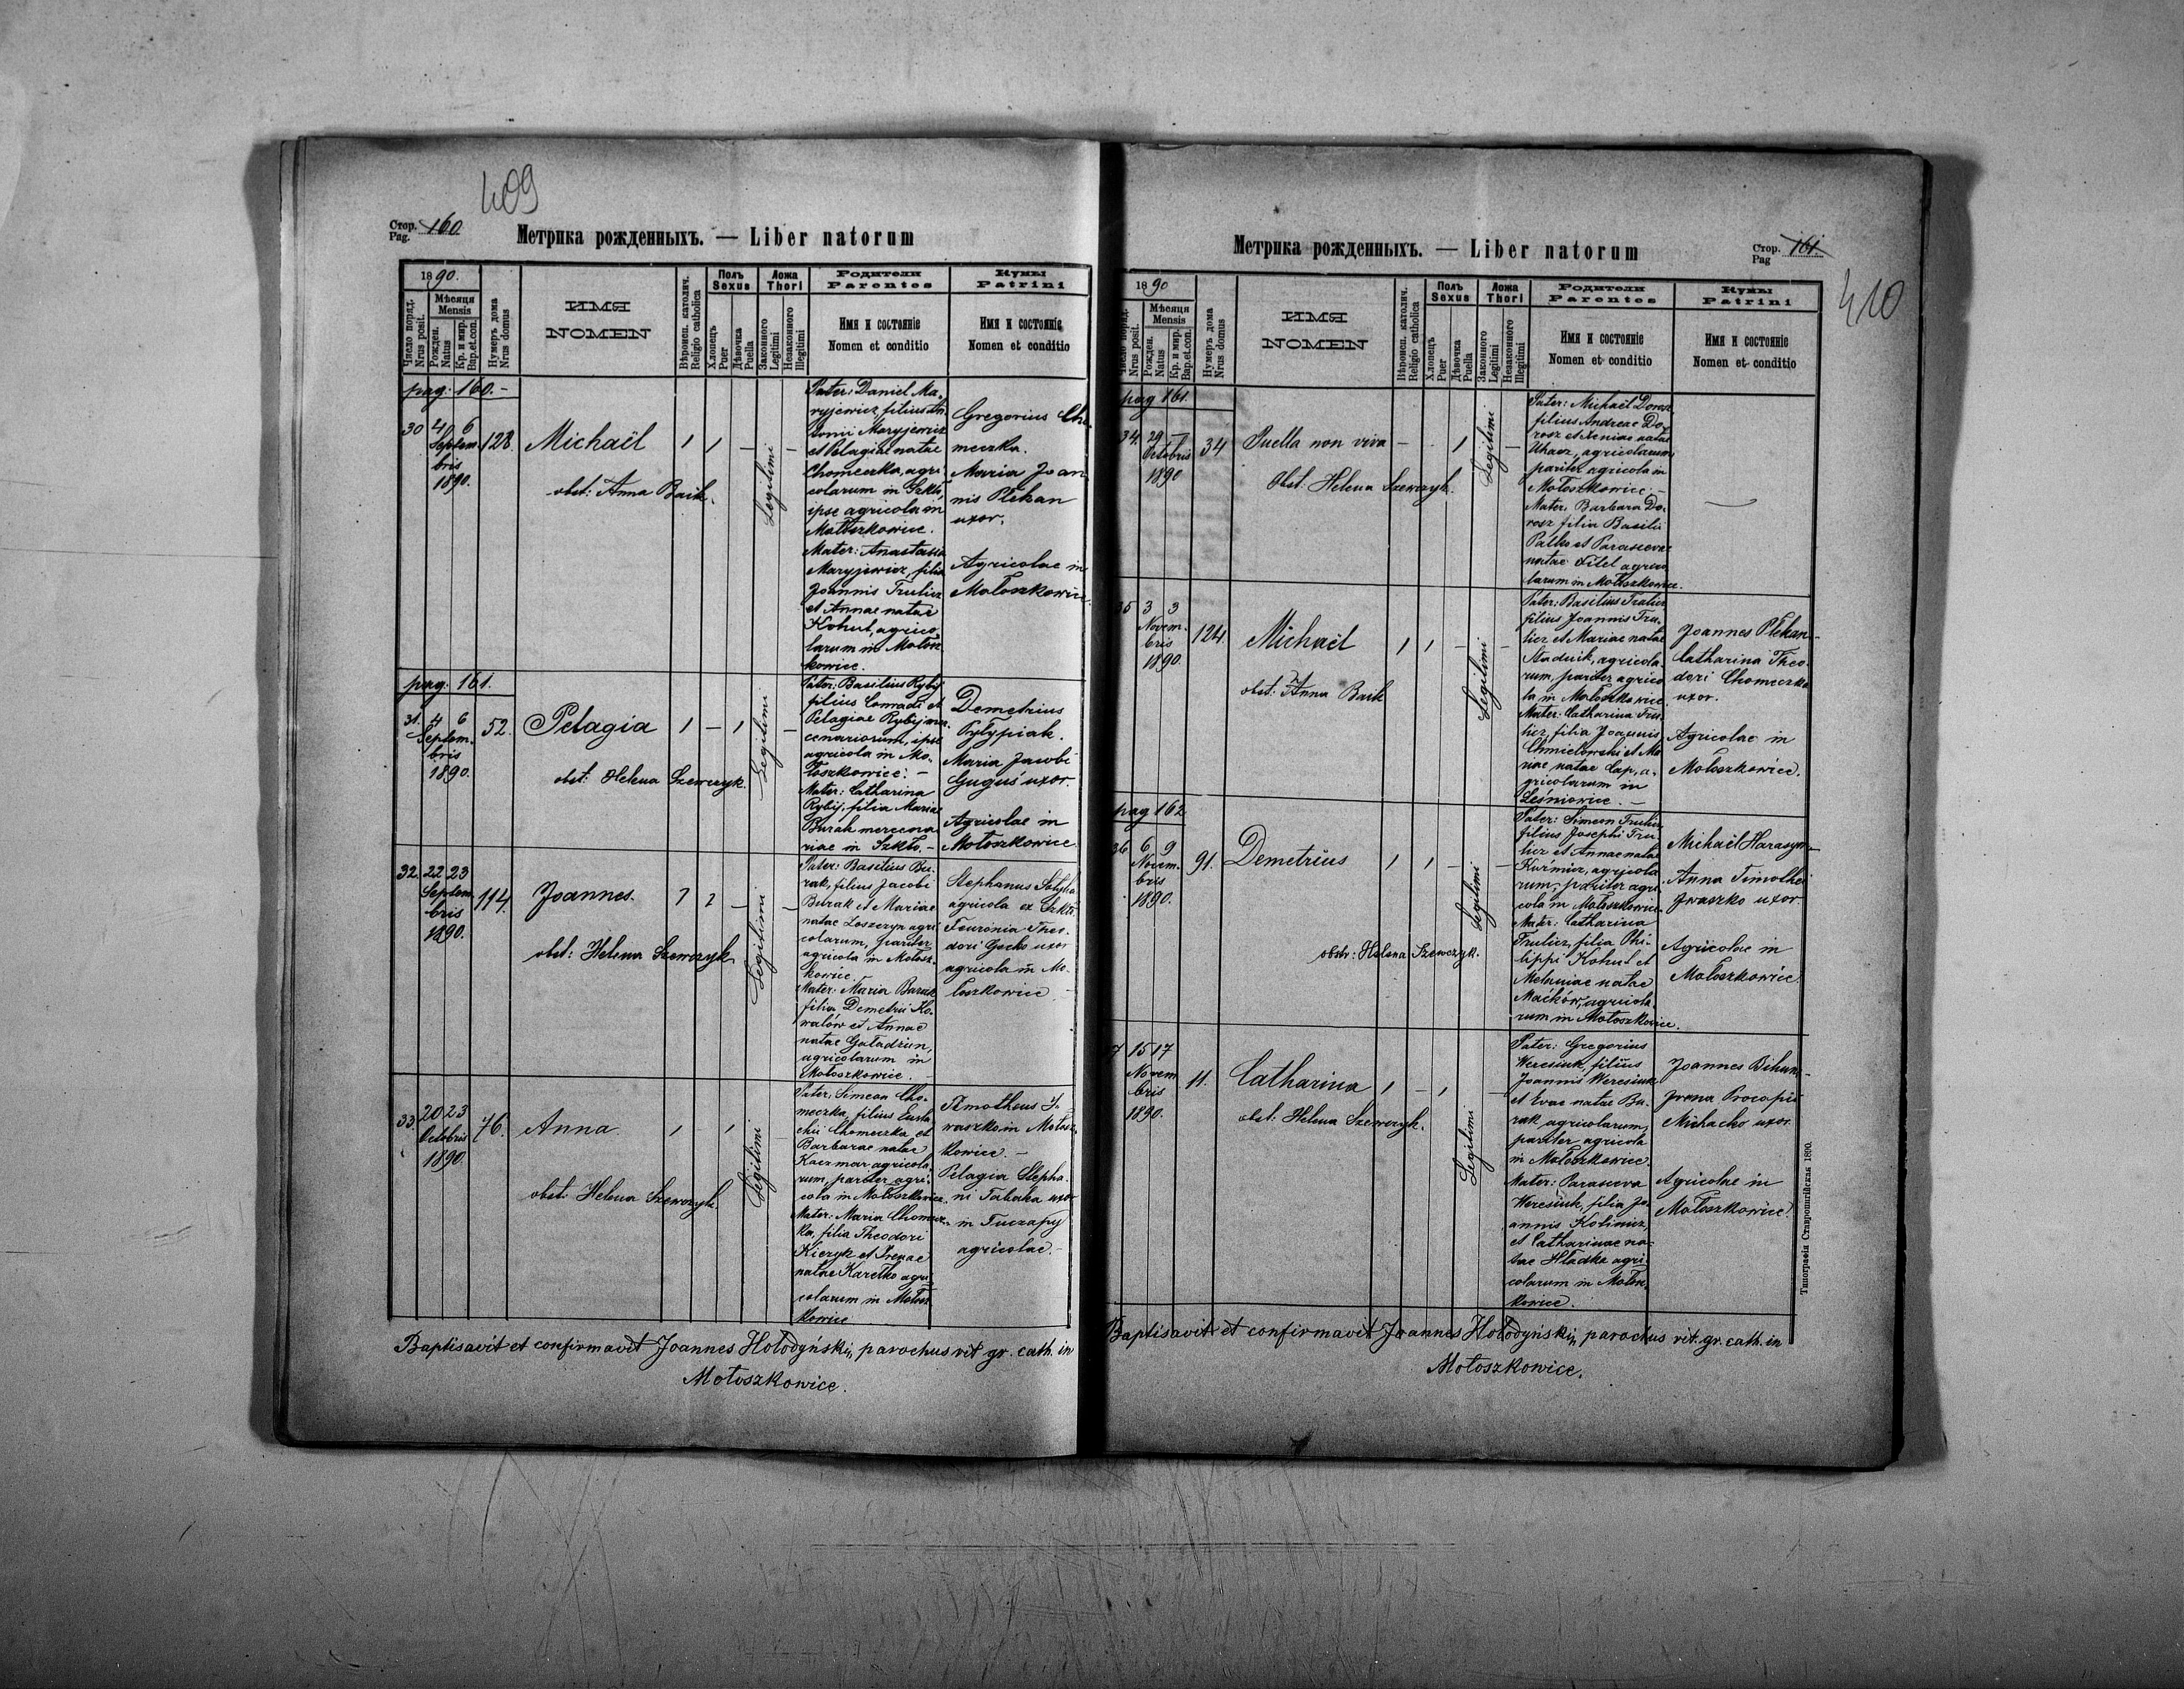 409
Стор. 160
Pag.
Метрика рожденныхъ. — Liber natorum
1890.
Число поряд.
Nrus posit.
Мѣсяця
Mensis
Рожден.
Natus
Кр. и мир.
Bap. et con.
Нумеръ дома
Nrus domus
ИМЯ
NOMEN
Вѣроисп. католич.
Religio catholica
Полъ
Sexus
Хлопецъ
Puer
Дѣвочка
Puella
Ложа
Thori
Законного
Legitimi
Незаконного
Illegitimi
Родители
Parentes
Имя и состоянiе
Nomen et conditio
Кумы
Patrini
Имя и состоянiе
Nomen et conditio
pag: 160. -
30 4 6
Septem
bris
1890.
128.
Michaël
obst: Anna Baik.
1 1 — —
Legitimi
Pater: Daniel Ma-
ryjewicz, filius An
tonii Maryjewicz
et Pelagiae natae
Chomeczka, agri
colarum in Szkło,
ipse agricola in
Mołoszkowice.
Mater: Anastasia
Maryjewicz, filia
Joannis Trulicz
et Annae natae
Kohut, agrico
larum in Mołosz
kowice.
Gregorius Cho
meczka.
Maria Joan
nis Plekan
uxor.
Agricolae in
Mołoszkowice.
pag: 161.
31. 4 6
Septem.
bris
1890.
52.
Pelagia
obst: Helena Szewczyk.
1 — 1 —
Legitimi
Pater: Basilius Rybij
filius Conradi et
Pelagiae Rybij mer
cenariorum, ipse
agricola in Mo
łoszkowice. —
Mater: Catharina
Rybij, filia Mariae
Burak mercena
riae in Szkło. —
Demetrius
Pyłypiak.
Maria Jacobi
Guguś uxor.
Agricolae in
Mołoszkowice
32. 22 23
Septem
bris
1890.
114.
Joannes.
obst: Helena Szewczyk
1 1 — —
Legitimi
Pater: Basilius Bu-
rak, filius Jacobi
Burak et Mariae
natae Loszczyn agri
colarum, pariter
agricola in Mołosz-
kowice.
Mater: Maria Burak
filia Demetrii Ko-
walów et Annae
natae Goładziun,
agricolarum in
Mołoszkowice. —
Stephanus
agricola ex Szkło
Feuronia Theo-
dori Gocko uxor
agricola in Mo-
łoszkowice
33. 20 23
Octobris
1890.
76.
Anna.
obst: Helena Szewczyk.
1 1
Legitimi
Pater: Simeon Cho-
meczka, filius Eusta
chii Chomeczka et
Barbarae natae
Kaczmar agricola-
rum, pariter agri-
cola in Mołoszkowice.
Mater: Maria Chomecz-
ka, filia Theodori
Kiczyk et Irenae
natae Karetko agri
colarum in Mołosz
kowice
Timotheus I-
waszko in Mołosz-
kowice. —
Pelagia Stepha-
ni Tabaka uxor
in Tuczapy
agricolae. —
Baptisavit et confirmavit Joannes Hołodyński, parochus rit. gr. cath. in
Mołoszkowice.
Метрика рожденныхъ. — Liber natorum
Стор. 161.
Pag
410
1890
Число поряд.
Nrus posit.
Мѣсяця
Mensis
Рожден.
Natus
Кр. и мир.
Bap. et con.
Нумеръ дома
Nrus domus
ИМЯ
NOMEN
Вѣроисп. католич.
Religio catholica
Полъ
Sexus
Хлопецъ
Puer
Дѣвочка
Puella
Ложа
Thori
Законного
Legitimi
Незаконного
Illegitimi
Родители
Parentes
Имя и состоянiе
Nomen et conditio
Кумы
Patrini
Имя и состоянiе
Nomen et conditio
pag 161.
34. 29 —
Octobris
1890
34
Puella non viva
Obst: Helena Szewczyk.
— 1 —
Legitimi
Pater: Michaël Dorosz
filius Andreae Do-
rosz et Xeniae natae
Uhacz, agricolarum
pariter agricola in
Mołoszkowice. —
Mater: Barbara Do-
rosz filia Basilii
Pałko et Parascevae
natae Fitel agrico
larum in Mołoszkowice.
—
35 3 3
Novem-
bris
1890.
124.
Michaël
obst: Anna Baik
1 1 — —
Legitimi
Pater: Basilius Trulicz
filius Joannis Tru-
licz et Mariae natae
Stadnik, agricola-
rum, pariter agrico
la in Mołoszkowice
Mater: Catharina Tru-
licz, filia Joannis
Chmielowski et Ma
riae natae Cap, a-
gricolarum in
Leśniowice. —
Joannes Plekan —
Catharina Theo-
dori Chomeczka
uxor.
Agricolae in
Mołoszkowice.
pag 162
36 6 9
Novem-
bris
1890.
91.
Demetrius
obst: Helena Szewczyk.
1 1 — —
Legitimi
Pater: Simeon Trulicz
filius Josephi Tru-
licz et Annae natae
Kuźmicz, agricola
rum, pariter agri
cola in Mołoszkowice.
Mater: Catharina
Trulicz, filia Phi-
lippi Kohut et
Melaniae natae
Maćków, agricola-
rum in Mołoszkowice.
Michaël Harasym —
Anna Timothei
Iwaszko uxor
Agricolae in
Mołoszkowice.
7 15 17
Novem
bris
1890.
11.
Catharina
obst: Helena Szewczyk.
1 — 1 —
Legitimi
Pater: Gregorius
Weresiuk, filius
Joannis Weresiuk
et Evae natae Bu-
rak agricolarum,
pariter agricola
in Mołoszkowice.
Mater: Parasceva
Weresiuk, filia Jo-
annis Kolinicz,
et Catharinae na-
tae Hładka agri
colarum in Mołosz-
kowice.
Joannes Bihun —
Irena Procopii
Michacko uxor.
Agricolae in
Mołoszkowice.
Baptisavit et confirmavit Joannes Hołodyński, parochus rit. gr. cath. in
Mołoszkowice.
Типографiя Ставропигiйская 1890.